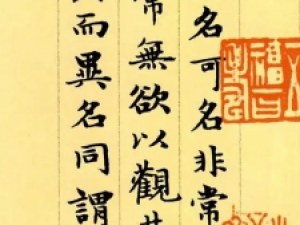 名可名非常
常無欲以觀其
而異名同謂